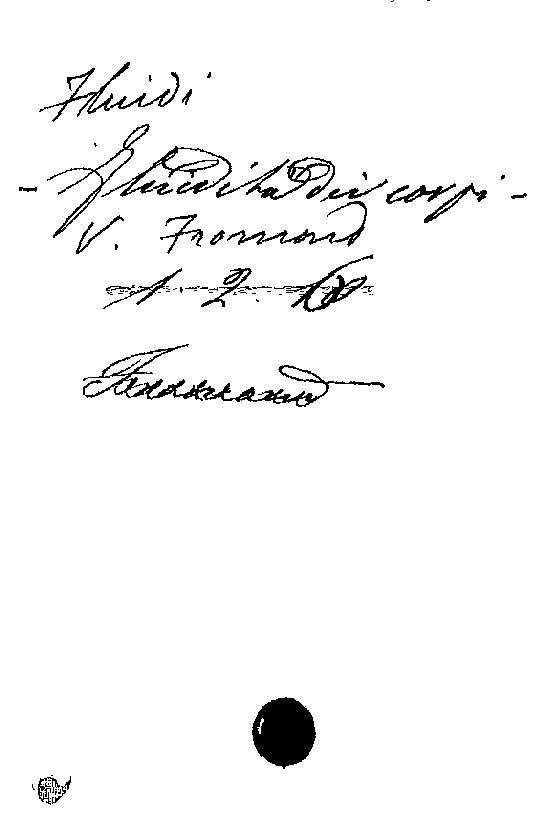 Fluidi
- Fluidità dei corpi -
V. Fromond
1. 2.